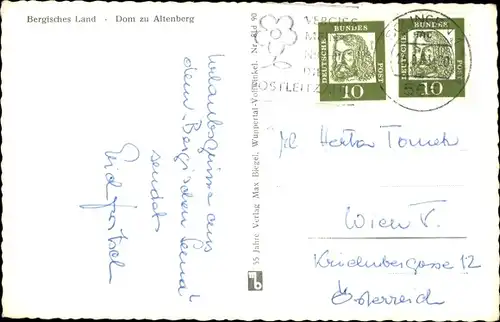 Bergisches Land - Dom zu Altenberg
Urlaubsgrüsse aus
dem "Bergischen Land"
sendet
55 Jahre Verlag Max Biegel, Wuppertal-Vohwinkel. Nr. Rld 90
VERGISS
OSTLEITZ
DEUTSCHE BUNDES POST
10
DEUTSCHE BUNDES POST
10
Herta
Wien V.
Kriehubergasse 12
Österreich